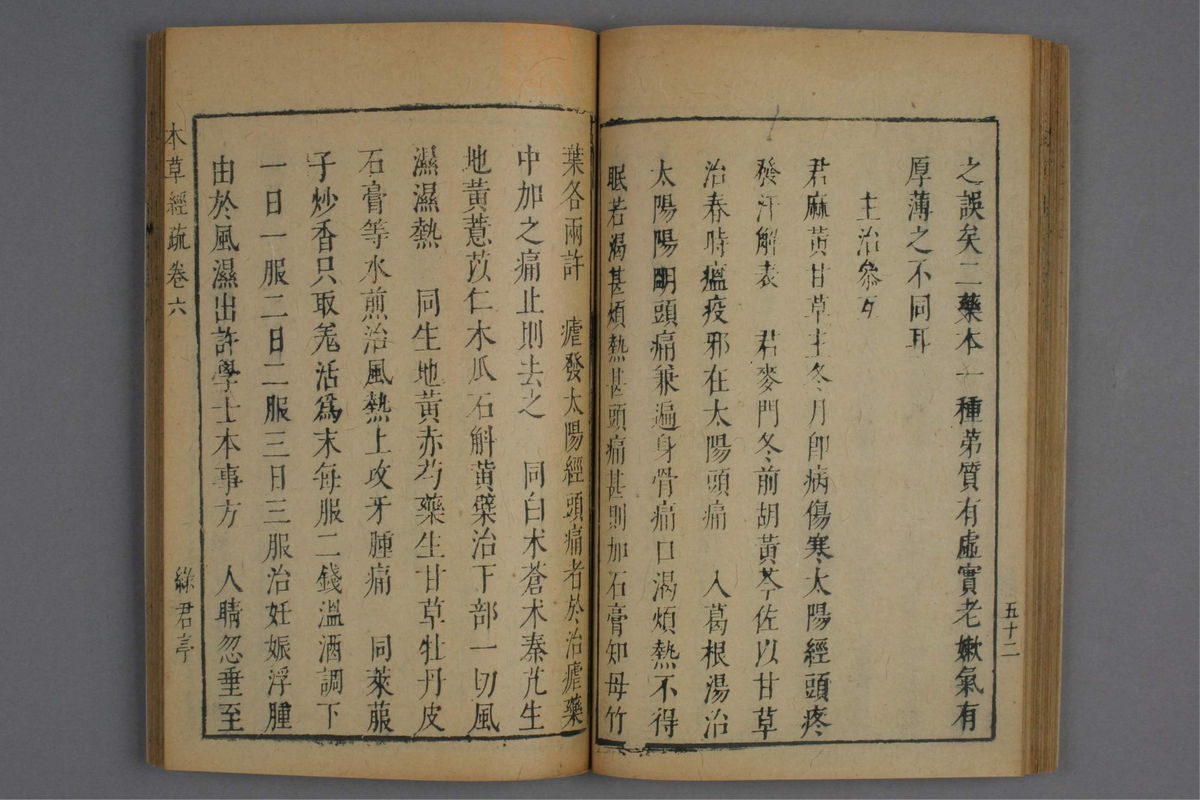 之誤矣二藥本一種第質有虛實老嫩氣有
厚薄之不同耳
主治參互
君麻黃甘草主冬月卽病傷寒太陽經頭疼
發汗解表　君麥門冬前胡黃芩佐以甘草
治春時瘟疫邪在太陽頭痛　入葛根湯治
太陽陽明頭痛兼遍身骨痛口渴煩熱不得
眠若渴甚煩熱甚頭痛甚則加石膏知母竹
五十二
葉各兩許　瘧發太陽經頭痛者於治瘧藥
中加之痛止則去之　同白术蒼术秦艽生
地黃薏苡仁木瓜石斛黃蘗治下部一切風
濕濕熱　同生地黃赤芍藥生甘草牡丹皮
石膏等水煎治風熱上攻牙腫痛　同萊菔
子炒香只取羗活爲末每服二錢溫酒調下
一日一服二日二服三日三服治妊娠浮腫
由於風濕出許學士本事方　人睛忽垂至
本草經疏卷六
綠君亭